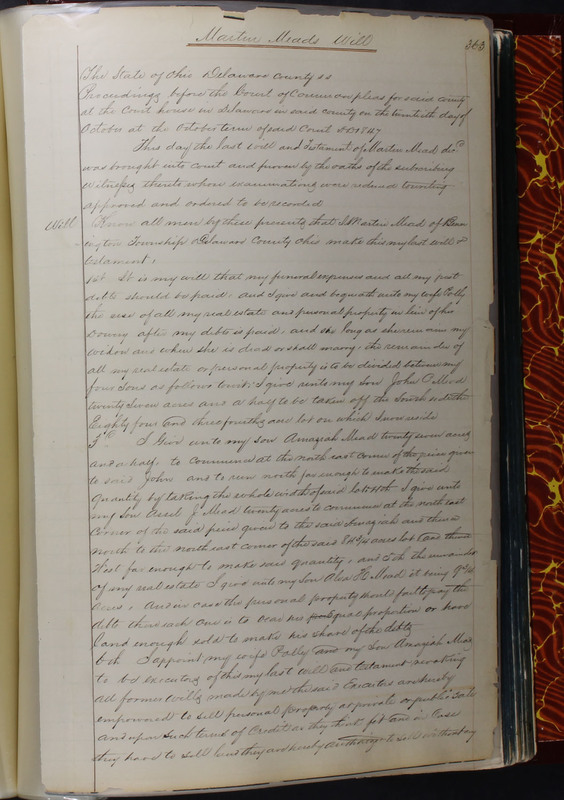 Martin Meads Will
363
The State of Ohio Delaware County ss
Proceedings before the Court of Common pleas for said county
at the Court house in Delaware in said county on the twentieth day of
October at the October term of said Court AD 1847
This day the last will and Testament of Martin Mead decd
was brought into court and proven by the oaths of the subscribing
witnesses thereto whose examinations were reduced to writing
approved and ordered to be recorded
Will
Know all men by these presents that I Martin Mead of Benn
ington Township Delaware County Ohio make this my last will &
testament,
1st It is my will that my funeral expenses and all my just
debts should be paid, and I give and bequeath unto my wife Polly
the use of all my real estate and personal property in lieu of her
Dowry after my debt is paid, and so long as she remains my
widow and when she is dead or shall marry, the remainder of
all my real estate or personal property is to be divided between my
four Sons as follows towit: I give unto my Son John
twenty Seven acres and a half to be taken off the South side the
Eighty four and three fourths acre lot on which I now reside
I Give unto my Son Amaziah Mead twenty seven acres
and a half, to commence at the north east corner of the piece given
to said John and to run north far enough to make the said
quantity by taking the whole width of said lot. 4th I give unto
my Son Assel J. Mead twenty acres to commence at the north east
Corner of the said piece given to the said Amaziah and thence
north to the north east corner of the said 84 3/4 acres lot and thence
West far enough to make said quantity, and 5th the remainder
of my real estate I give unto my Son Alva H. Mead it being 9 3/4
acres, And in case the personal property should fail to pay the
debts then each one is to bear his equal proportion or have
land enough sold to make his share of the debts
6th I appoint my wife Polly and my Son Amaziah Mead
to be executors of this my last will and testament revoking
all former wills made by me the said Executors are hereby
empowered to sell personal property at private or public Sale
and upon Such terms of Credit as they think fit and in Case
they have to sell land they are hereby authorized to sell without any